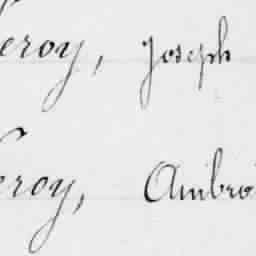 eroy, Joseph
eroy, Ambro